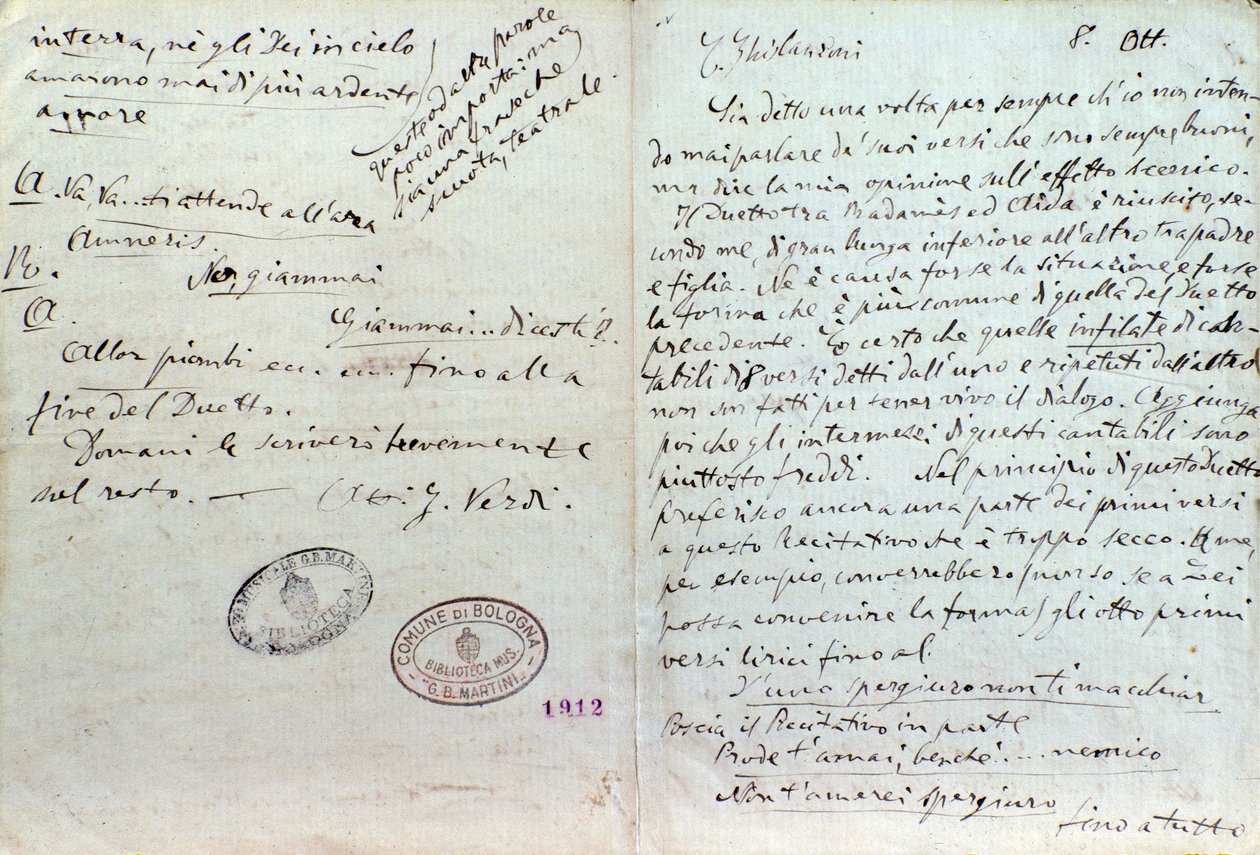 C. Ghislanzoni
8. Ott.
Sia detto una volta per sempre ch'io non inten-
do mai parlare de' suoi versi che sono sempre buoni,
ma dire la mia opinione sull'effetto scenico.
Il Duetto tra Radamès ed Aida è riuscito, se-
condo me, di gran lunga inferiore all'altro tra padre
e figlia. Ne è causa forse la situazione, e forse
la forma che è più comune di quella del Duetto
precedente. È certo che quelle infilate di can-
tabili di 8 versi detti dall'uno e ripetuti dall'altro
non son fatti per tener vivo il dialogo. Aggiunga
poi che gli intermezzi di questi cantabili sono
piuttosto freddi. Nel principio di questo Duetto
preferisco ancora una parte dei primi versi
a questo Recitativo che è troppo secco. A me,
per esempio, converrebbero (non so se a Lei
possa convenire la forma) gli otto primi
versi lirici fino al.
D'uno spergiuro non ti macchiar
Poscia il Recitativo in parte
Prode t'amai, benchè.... nemico
Non t'amerei spergiuro
fino a tutto
in terra, nè gli Dei in cielo
amarono mai di più ardente
amore
queste od altre parole
poco importa: ma
sia una frase che
scuota, teatrale
A. Va, Va... ti attende all'ara
Amneris.
R. No, giammai
A. Giammai... dicesti?..
Allor piombi ecc. ecc. fino alla
fine del Duetto.
Domani le scriverò brevemente
sul resto. — Aff. G. Verdi.
BIBLIOTECA
BOLOGNA
COMUNE DI BOLOGNA
BIBLIOTECA MUS.
"G. B. MARTINI"
1912